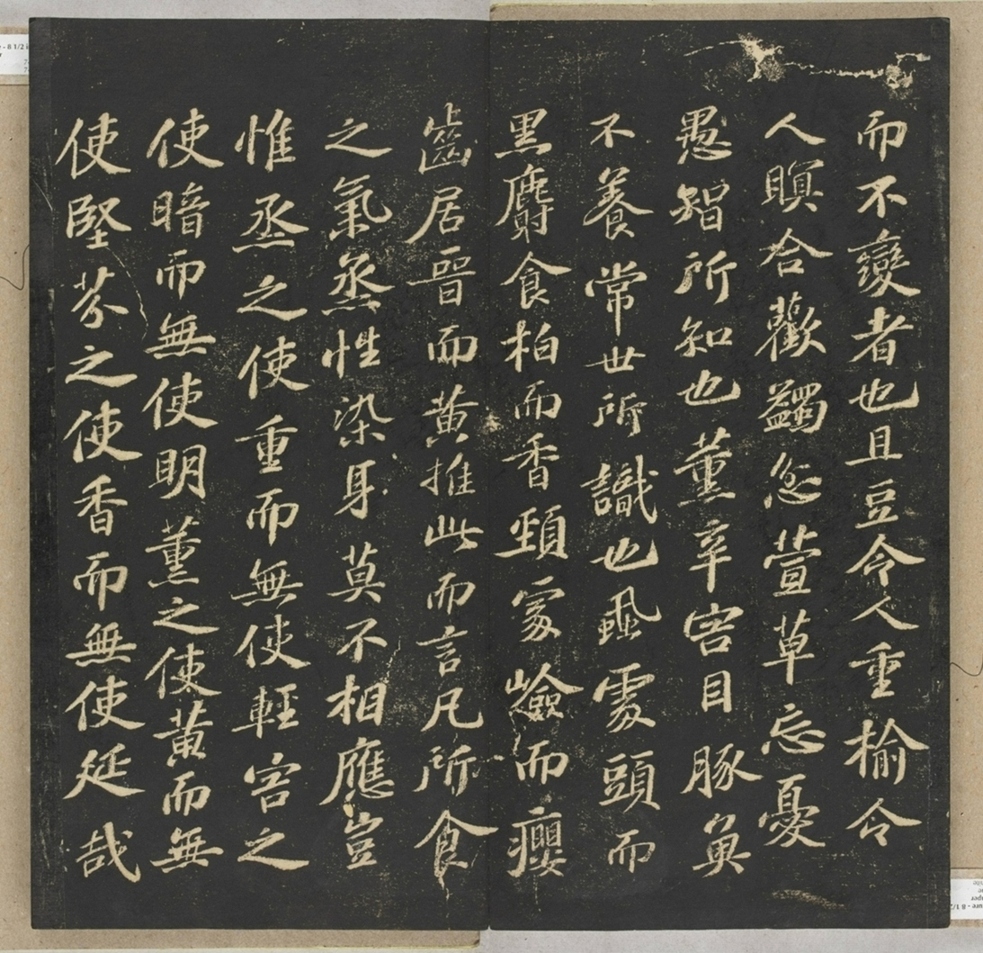 而不變者也且豆令人重榆令
人瞑合歡蠲忿萱草忘憂
愚智所知也董辛害目豚魚
不養常世所識也虱處頭而
黑麝食柏而香頸處嶮而癭
齒居晉而黄推此而言凡所食
之氣蒸性染身莫不相應豈
惟烝之使重而無使輕害之
使暗而無使明薰之使黄而無
使堅芬之使香而無使延哉